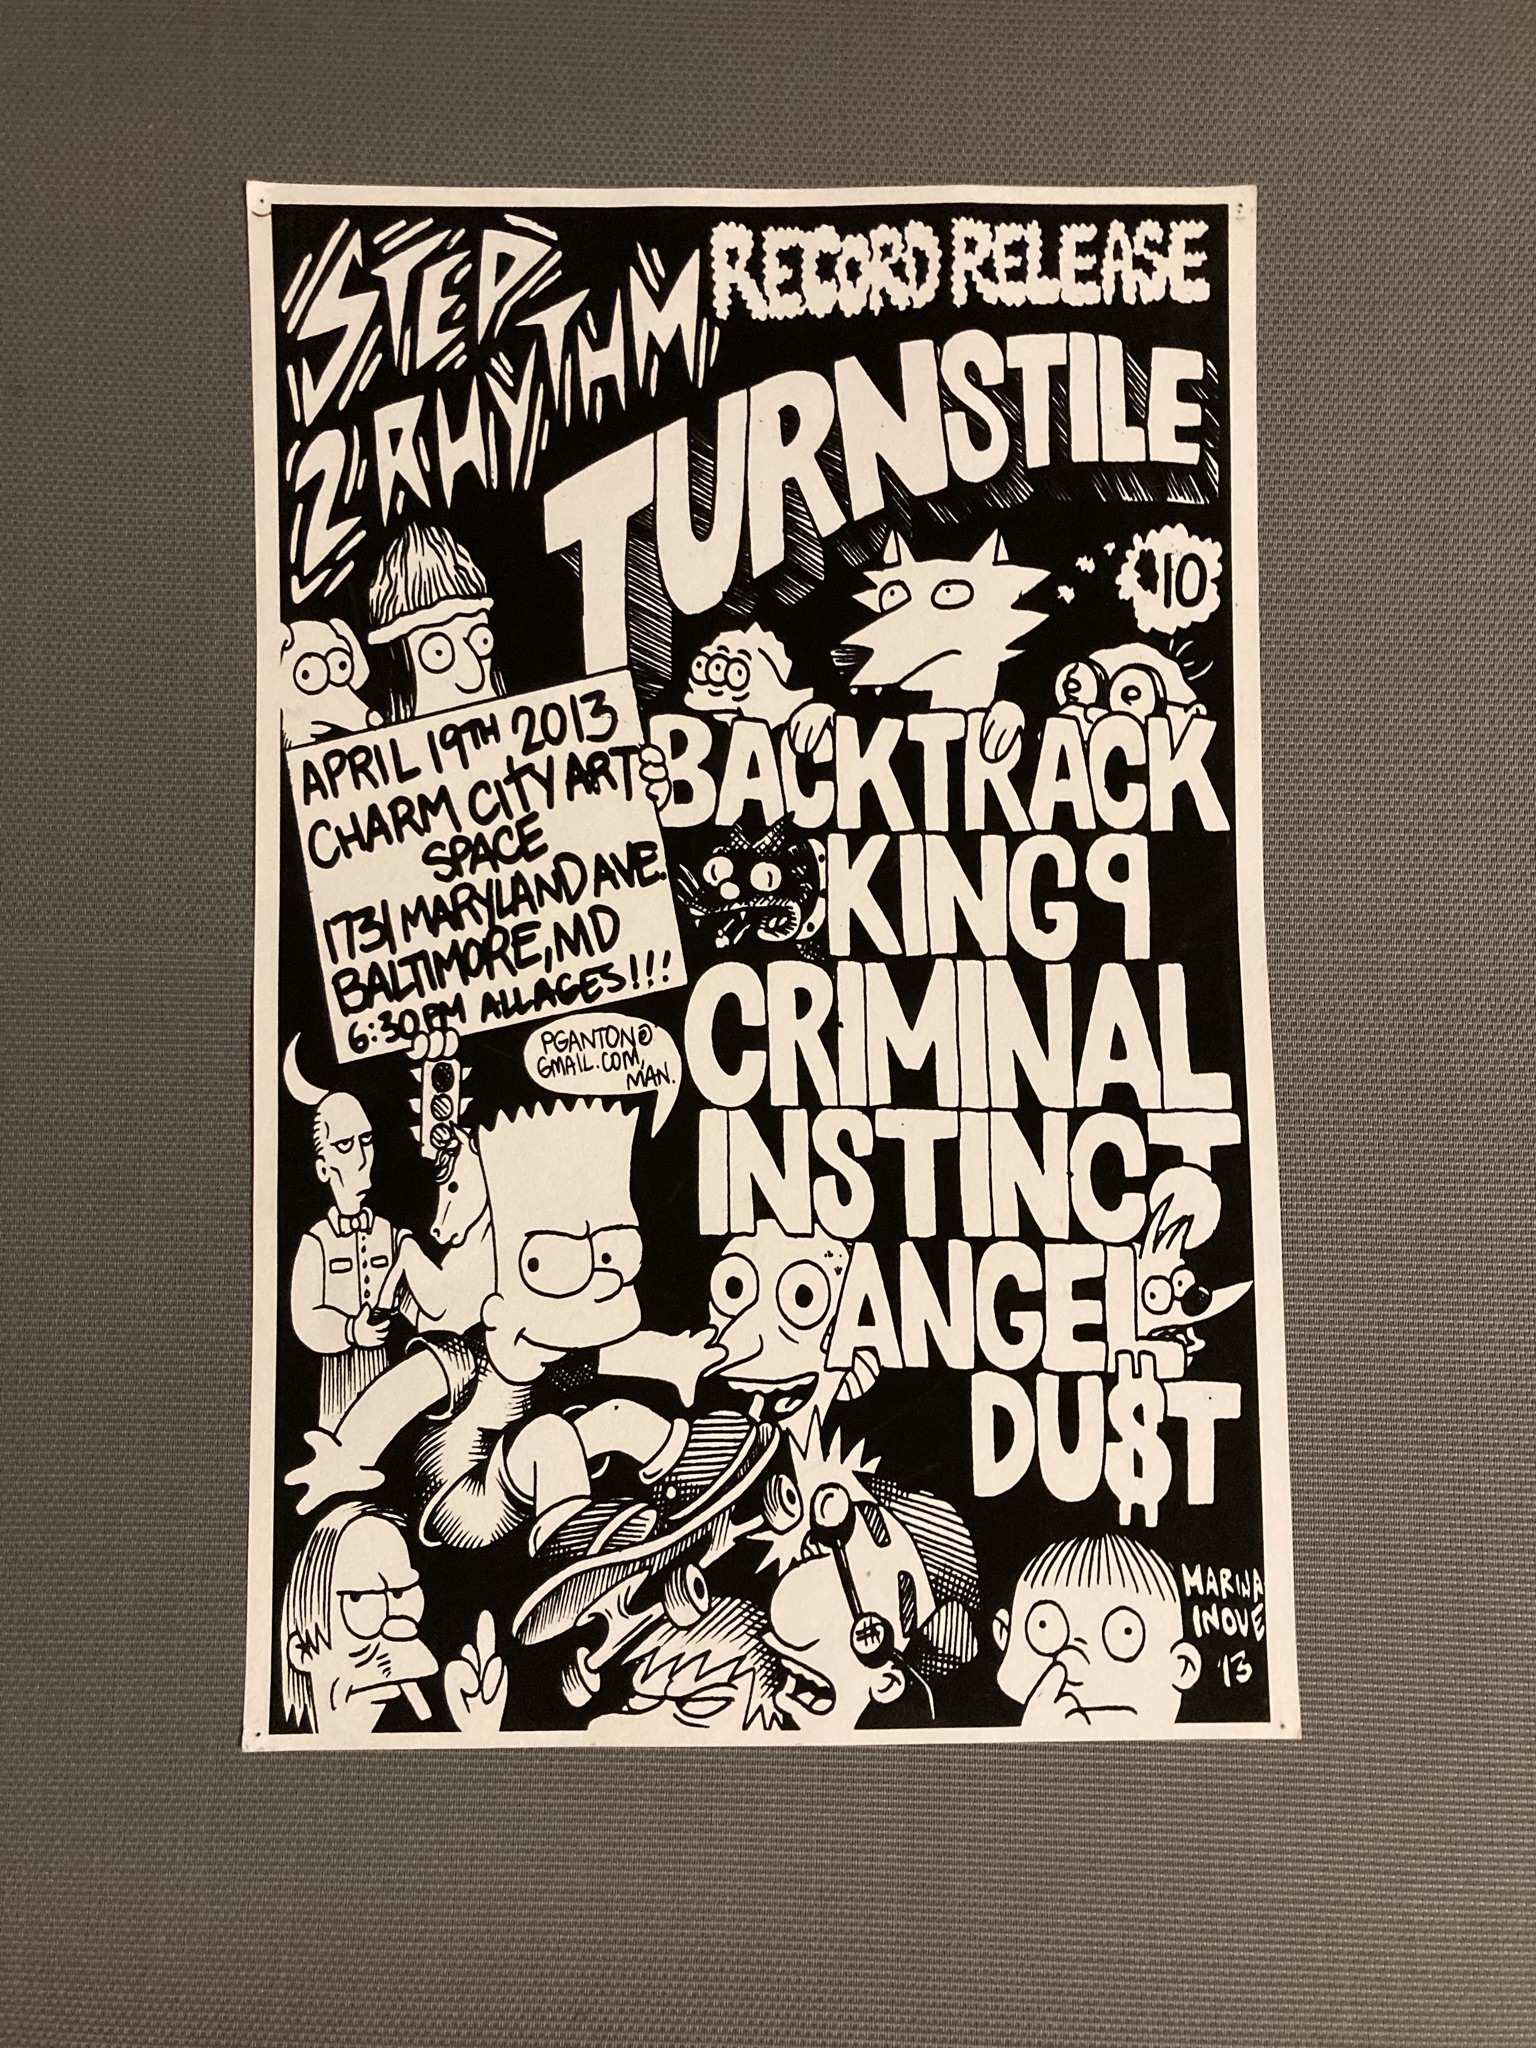 STEP
2 RHYTHM
RECORD RELEASE
TURNSTILE
$10
APRIL 19TH 2013
CHARM CITY ART
SPACE
1731 MARYLAND AVE.
BALTIMORE, MD
6:30PM ALL AGES!!!
BACKTRACK
KING 9
CRIMINAL
INSTINCT
ANGEL
DU$T
PGANTON@
GMAIL.COM,
MAN.
#
MARINA
INOUE
'13